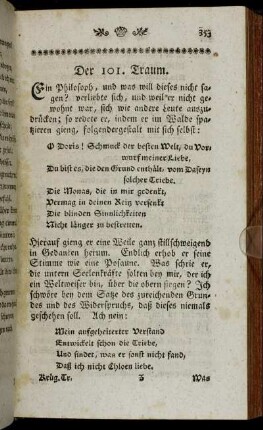 353
Der 101. Traum.
Ein Philosoph, und was will dieses nicht sa-
gen? verliebte sich, und weil er nicht ge-
wohnt war, sich wie andere Leute auszu-
drücken; so redete er, indem er im Walde spa-
zieren gieng, folgendergestalt mit sich selbst:
O Doris! Schmuck der besten Welt, du Vor-
wurf meiner Liebe,
Du bist es, die den Grund enthält, vom Daseyn
solcher Triebe.
Die Monas, die in mir gedenkt,
Vermag in deinen Reitz versenkt
Die blinden Sinnlichkeiten
Nicht länger zu bestreiten.
Hierauf gieng er eine Weile ganz stillschweigend
in Gedanken herum. Endlich erhob er seine
Stimme wie eine Posaune. Was schrie er,
die untern Seelenkräfte solten bey mir, der ich
ein Weltweiser bin, über die obern siegen? Ich
schwöre bey dem Satze des zureichenden Grun-
des und des Widerspruchs, daß dieses niemals
geschehen soll. Ach nein:
Mein aufgeheiterter Verstand
Entwickelt schon die Triebe,
Und findet, was er sonst nicht fand,
Daß ich nicht Chloen liebe.
Krüg. Tr. Z Was